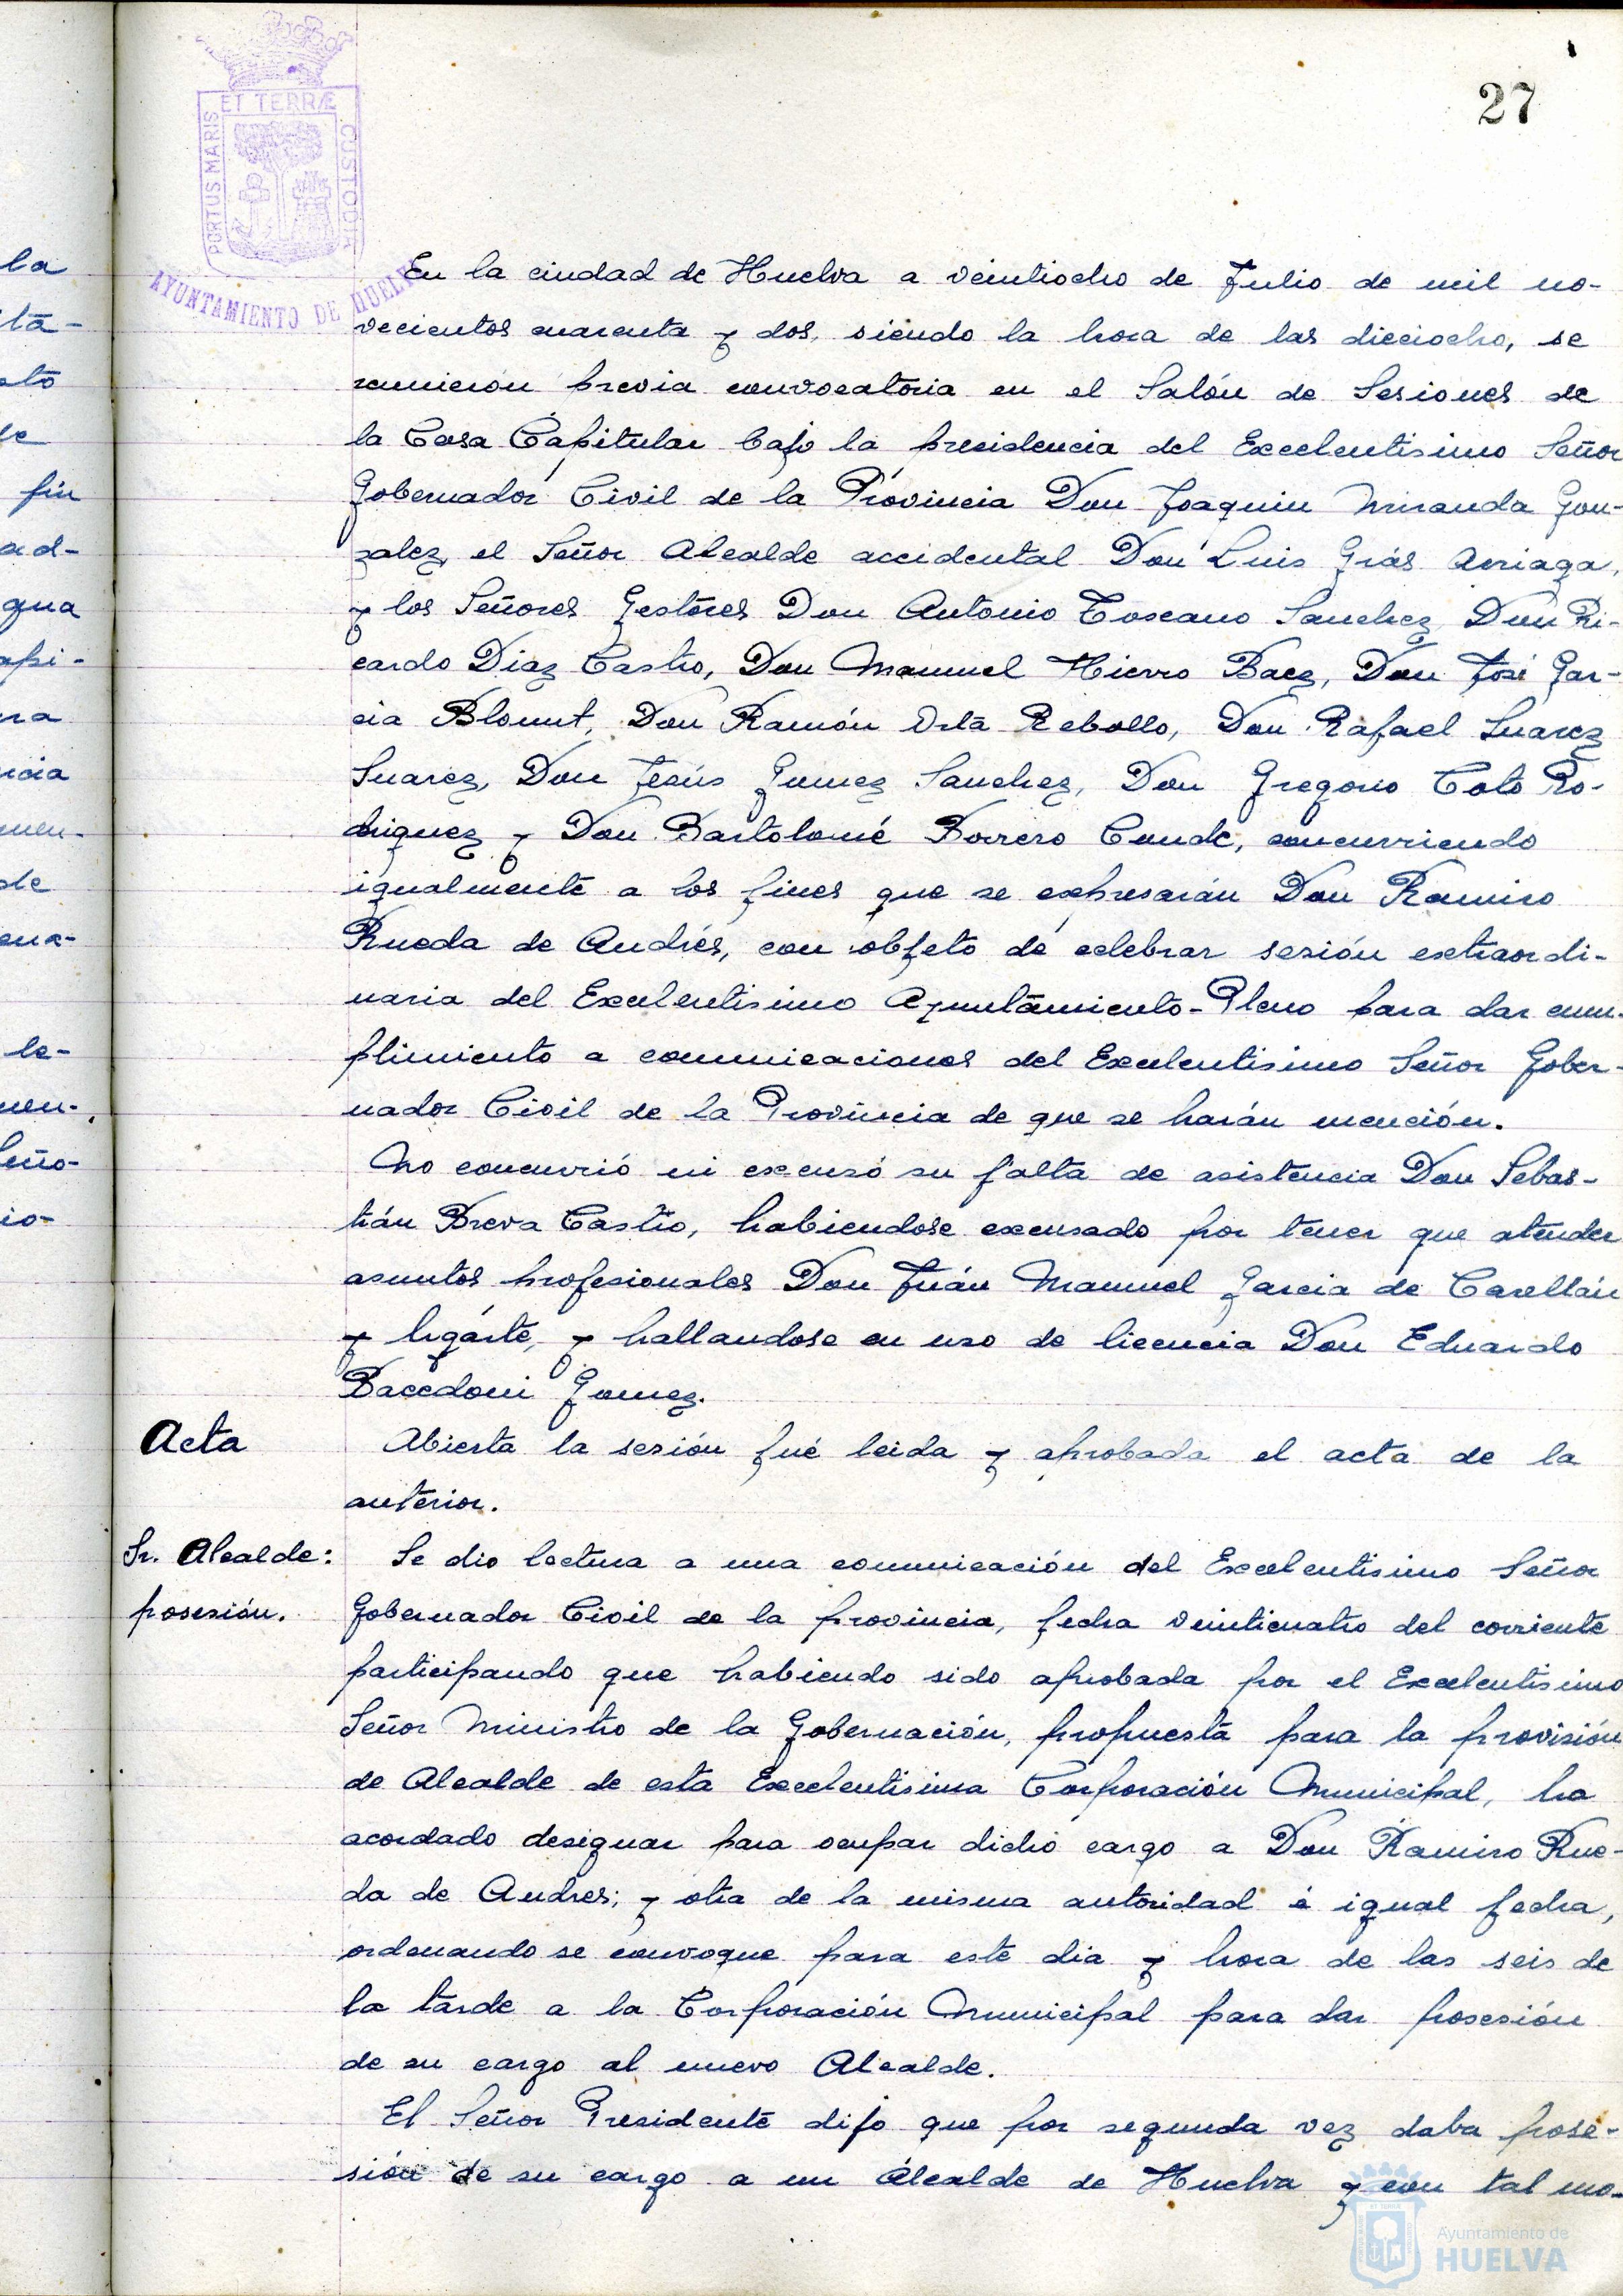 27
PORTUS MARIS ET TERRÆ CUSTODIA
AYUNTAMIENTO DE HUELVA
En la ciudad de Huelva a veintiocho de Julio de mil no-
vecientos cuarenta y dos, siendo la hora de las dieciocho, se
reunieron previa convocatoria en el Salón de Sesiones de
la Casa Capitular bajo la presidencia del Excelentisimo Señor
Gobernador Civil de la Provincia Don Joaquin Miranda Gon-
zalez, el Señor Alcalde accidental Don Luis Grás Arriaga,
y los Señores Gestores Don Antonio Toscano Sanchez, Don Ri-
cardo Diaz Castro, Don Manuel Hierro Baez, Don José Gar-
cia Blount, Don Ramón Orta Rebollo, Don Rafael Suarez
Suarez, Don Jesús Gomez Sanchez, Don Gregorio Coto Ro-
driguez y Don Bartolomé Borrero Conde, concurriendo
igualmente a los fines que se expresarán Don Ramiro
Rueda de Andrés, con objeto de celebrar sesión extraordi-
naria del Excelentisimo Ayuntamiento-Pleno para dar cum-
plimiento a comunicaciones del Excelentisimo Señor Gober-
nador Civil de la Provincia de que se harán mención.
No concurrió ni excusó su falta de asistencia Don Sebas-
tián Breva Castro, habiendose excusado por tener que atender
asuntos profesionales Don Juán Manuel Garcia de Carellán
y Ugarte, y hallandose en uso de licencia Don Eduardo
Bacedoni Gomez.
Acta
Abierta la sesión fué leida y aprobada el acta de la
anterior.
Sr. Alcalde:
posesión.
Se dio lectura a una comunicación del Excelentisimo Señor
Gobernador Civil de la provincia, fecha veinticuatro del corriente
participando que habiendo sido aprobada por el Excelentisimo
Señor Ministro de la Gobernación, propuesta para la provisión
de Alcalde de esta Excelentisima Corporación Municipal, ha
acordado designar para ocupar dicho cargo a Don Ramiro Rue-
da de Andres; y otra de la misma autoridad é igual fecha,
ordenando se convoque para este dia y hora de las seis de
la tarde a la Corporación Municipal para dar posesión
de su cargo al nuevo Alcalde.
El Señor Presidente dijo que por segunda vez daba pose-
sión de su cargo a un Alcalde de Huelva y con tal mo-
Ayuntamiento de
HUELVA